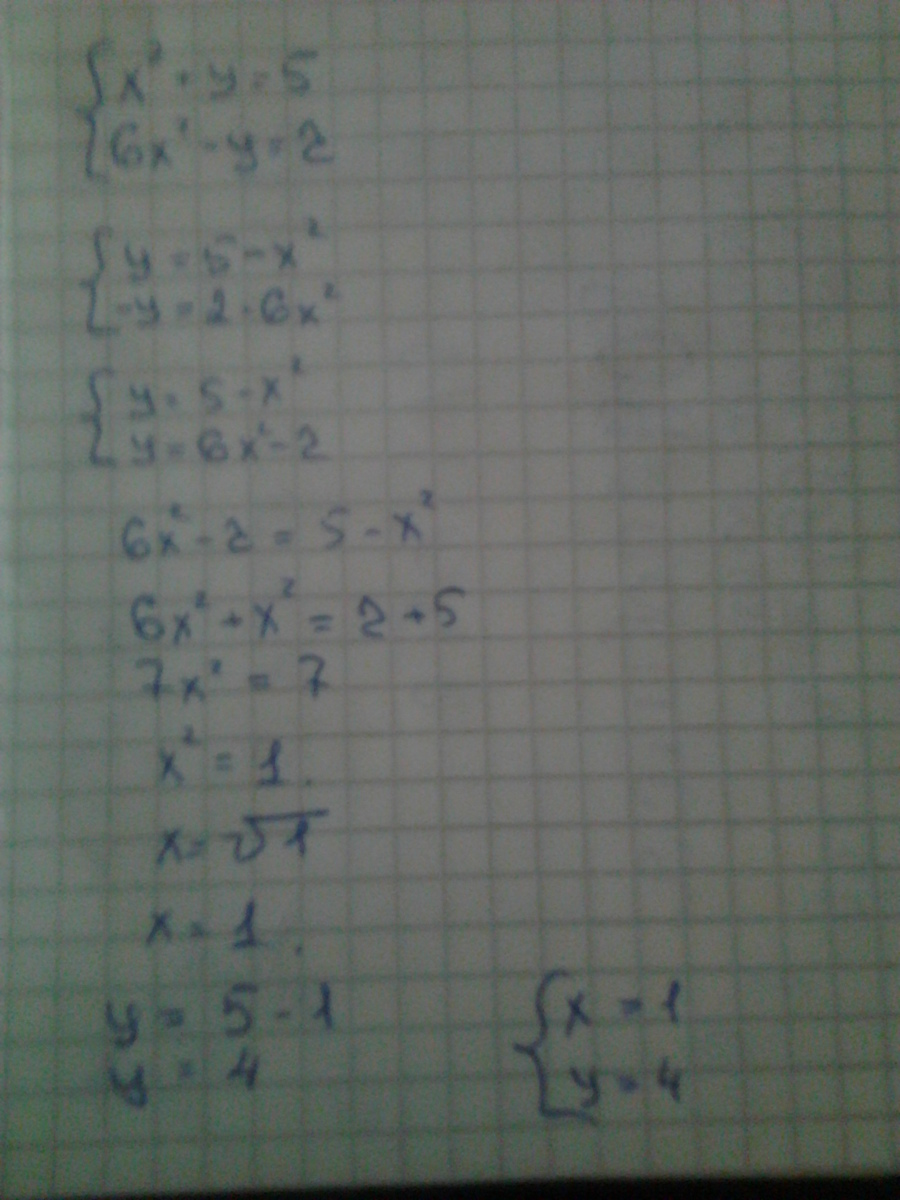 {x² + y = 5
{6x² - y = 2
{y = 5 - x²
{-y = 2 - 6x²
{y = 5 - x²
{y = 6x² - 2
6x² - 2 = 5 - x²
6x² + x² = 2 + 5
7x² = 7
x² = 1.
x = √1
x = 1.
y = 5 - 1
y = 4
{x = 1
{y = 4